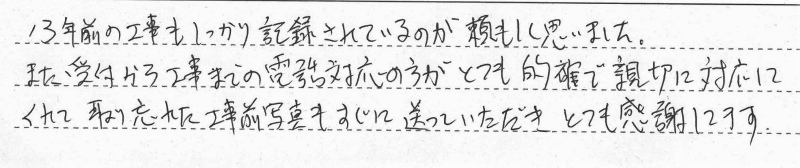 13年前の工事もしっかり記録されているのが頼もしく思いました。
また受付から工事までの電話対応の方がとても的確で親切に対応して
くれて 取り忘れた工事前写真もすぐに送っていただき とても感謝してます.